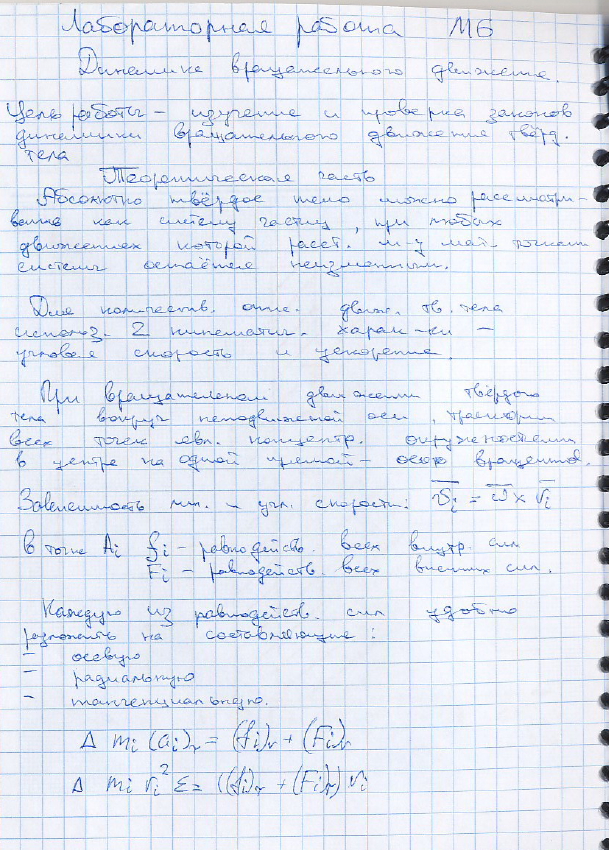 Лабораторная работа М6
Динамика вращательного движения.
Цель работы – изучение и проверка законов
динамики вращательного движения твёрд.
тела
Теоретическая часть
Абсолютно твёрдое тело можно рассматри-
вать как систему частиц, при любых
движениях которой расст. м-у мат. точками
системы остаётся неизменным.
Для количеств. опис. движ. тв. тела
использ. 2 кинематич. харак-ки –
угловая скорость и ускорение.
При вращательном движении твёрдого
тела вокруг неподвижной оси траектории
всех точек явл. концентр. окружностями
в центре на одной прямой – осью вращения.
Зависимость лин. – угл. скорости: v̅i = ω̅ × r̅i
В точке Ai fi – равнодейств. всех внутр. сил
Fi – равнодейств. всех внешних сил.
Каждую из равнодейств. сил удобно
разложить на составляющие:
– осевую
– радиальную
– тангенциальную.
Δ mi (ai)τ = (fi)τ + (Fi)τ
Δ mi ri² ε = ((fi)τ + (Fi)τ) ri